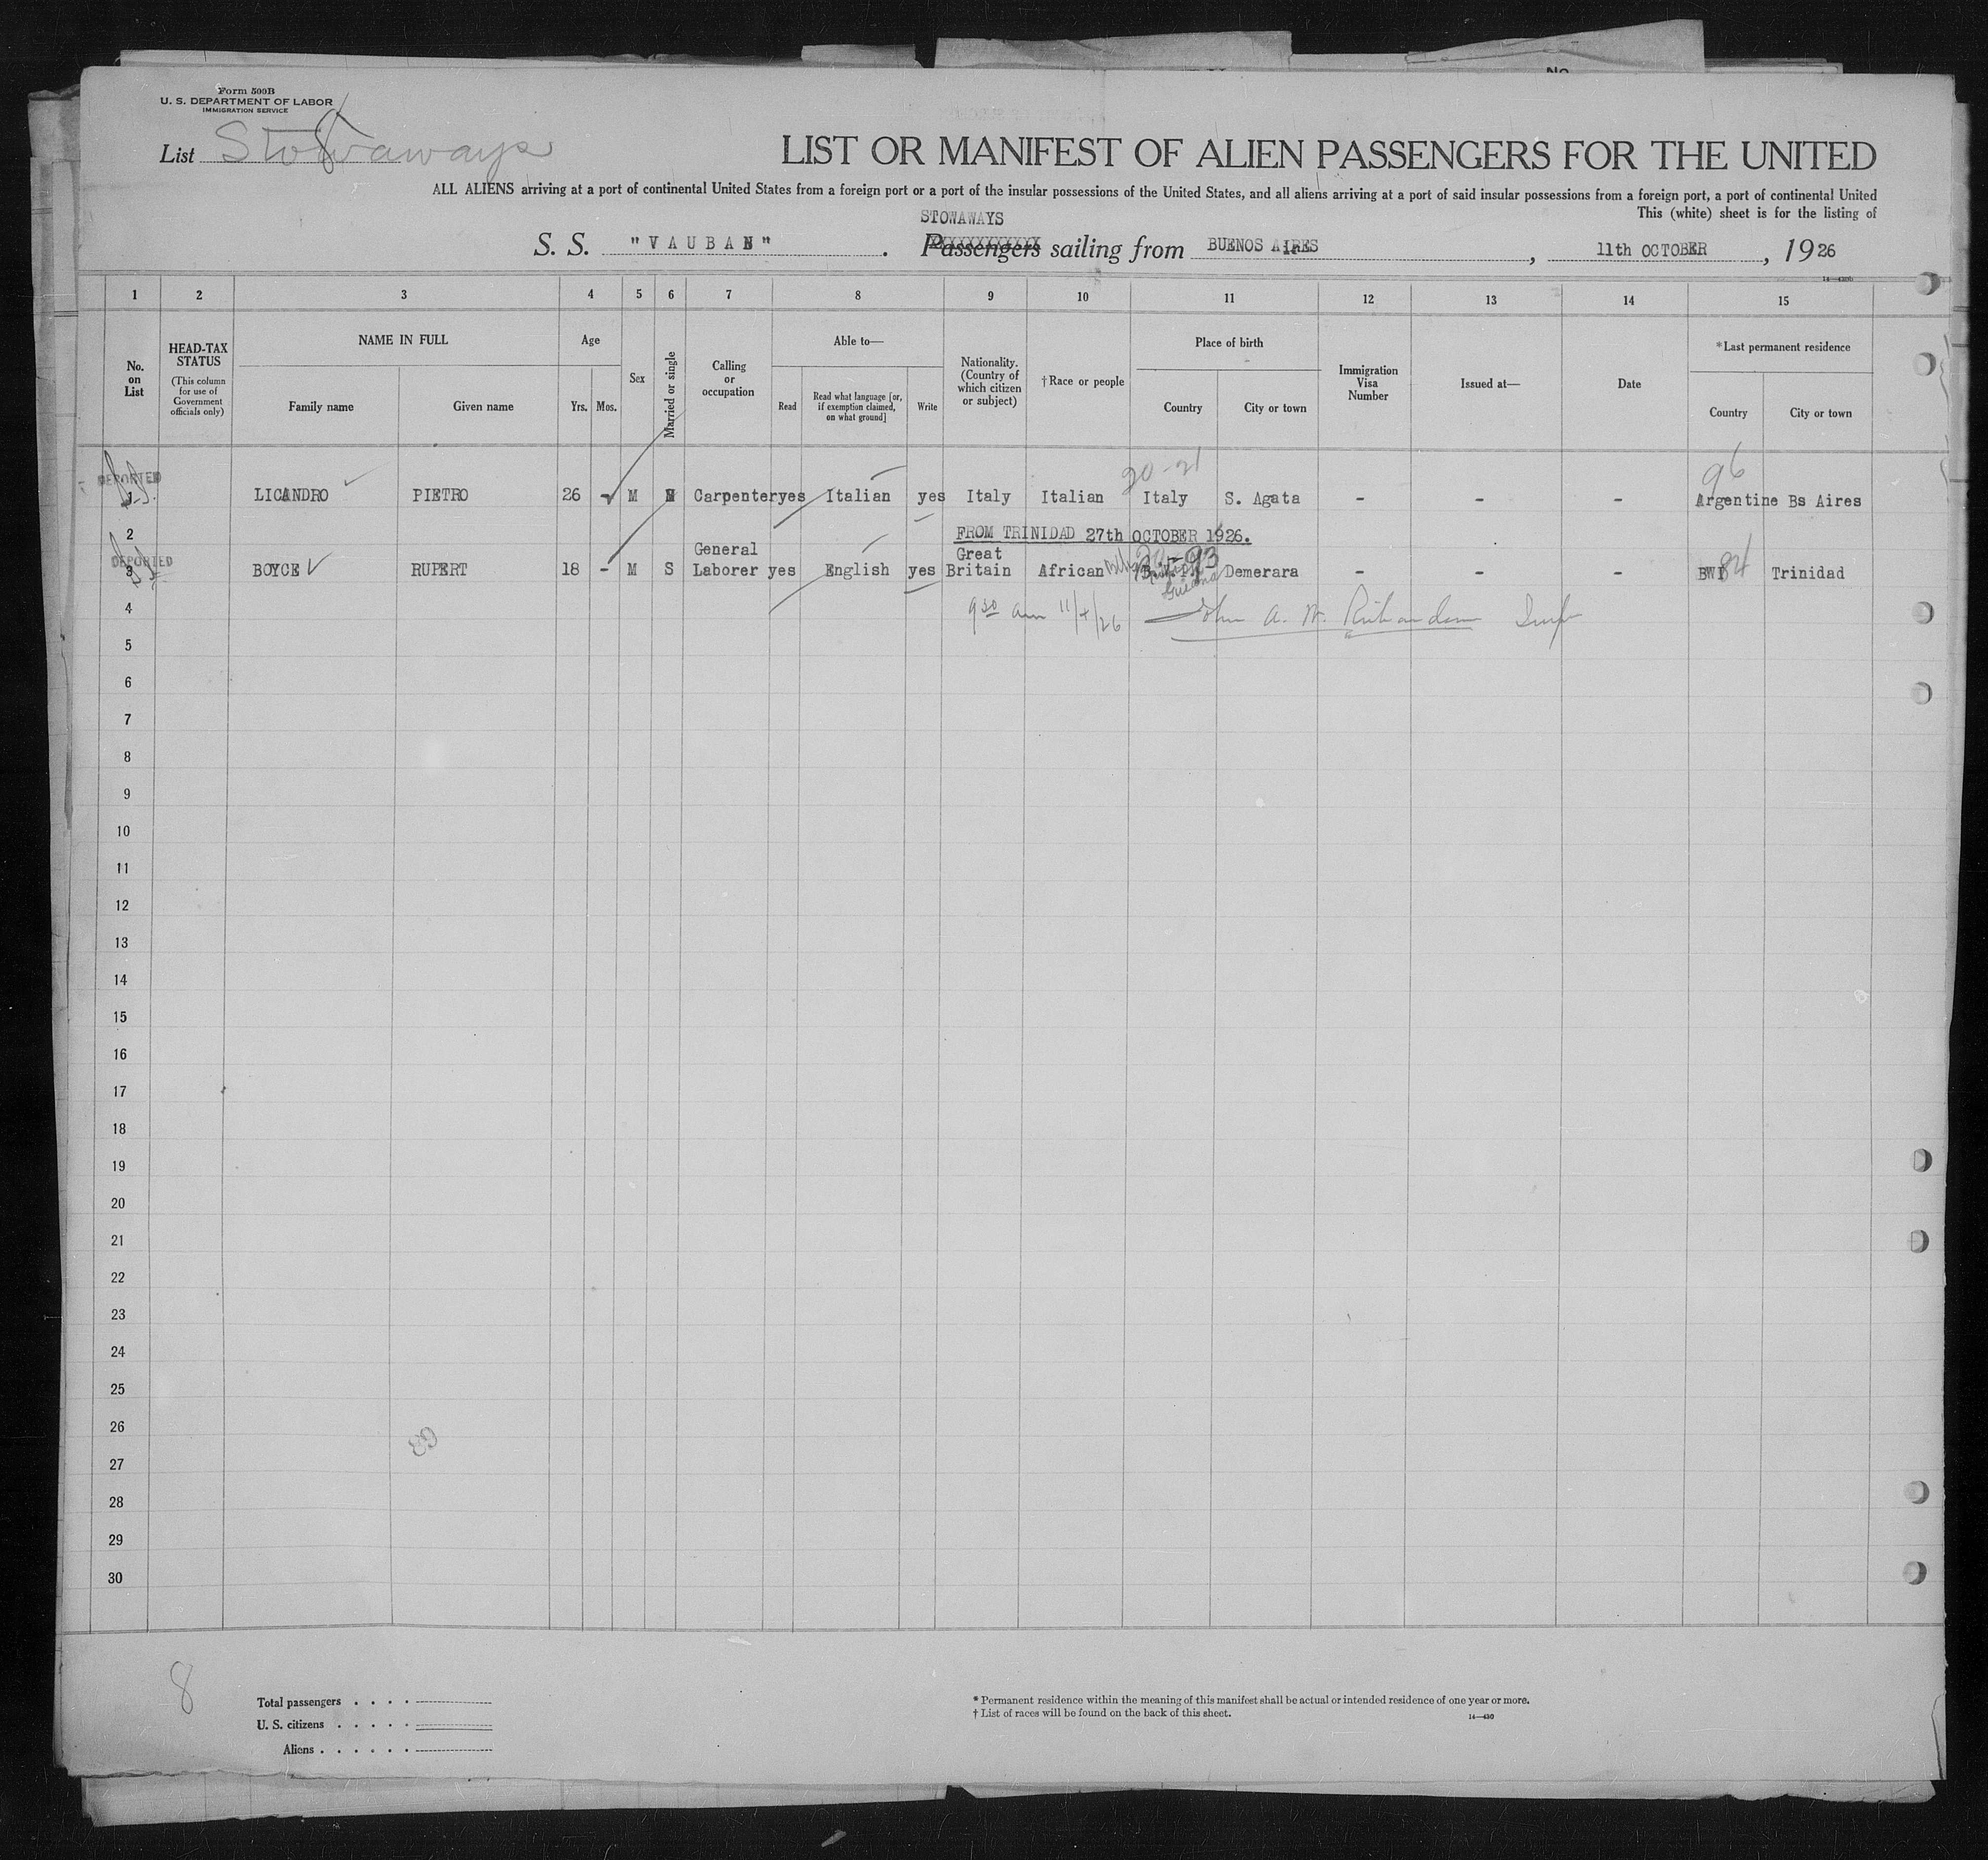 Form 500B
U. S. DEPARTMENT OF LABOR
IMMIGRATION SERVICE
List Stowaways
LIST OR MANIFEST OF ALIEN PASSENGERS FOR THE UNITED
ALL ALIENS arriving at a port of continental United States from a foreign port or a port of the insular possessions of the United States, and all aliens arriving at a port of said insular possessions from a foreign port, a port of continental United
This (white) sheet is for the listing of
STOWAWAYS
S. S. "VAUBAN". Passengers sailing from BUENOS AIRES, 11th OCTOBER, 1926
1 2 3 4 5 6 7 8 9 10 11 12 13 14 15
No. on List
HEAD-TAX STATUS
(This column for use of Government officials only)
NAME IN FULL
Family name Given name
Age
Yrs. Mos.
Sex
Married or single
Calling or occupation
Able to—
Read
Read what language [or, if exemption claimed, on what ground]
Write
Nationality. (Country of which citizen or subject)
†Race or people
Place of birth
Country City or town
Immigration Visa Number
Issued at—
Date
*Last permanent residence
Country City or town
20-21 96
DEPORTED
1 LICANDRO PIETRO 26 - M Carpenter yes Italian yes Italy Italian Italy S. Agata - - - Argentine Bs Aires
2 FROM TRINIDAD 27th OCTOBER 1926.
DEPORTED
3 BOYCE RUPERT 18 - M S General Laborer yes English yes Great Britain African Demerara - - - BWI 84 Trinidad
Guiana
4 9 30 am 11/ /26 John A. W. Richardson
5
6
7
8
9
10
11
12
13
14
15
16
17
18
19
20
21
22
23
24
25
26
27
28
29
30
8
Total passengers . . . .
U. S. citizens . . . . .
Aliens . . . . . .
* Permanent residence within the meaning of this manifest shall be actual or intended residence of one year or more.
† List of races will be found on the back of this sheet.
14—430